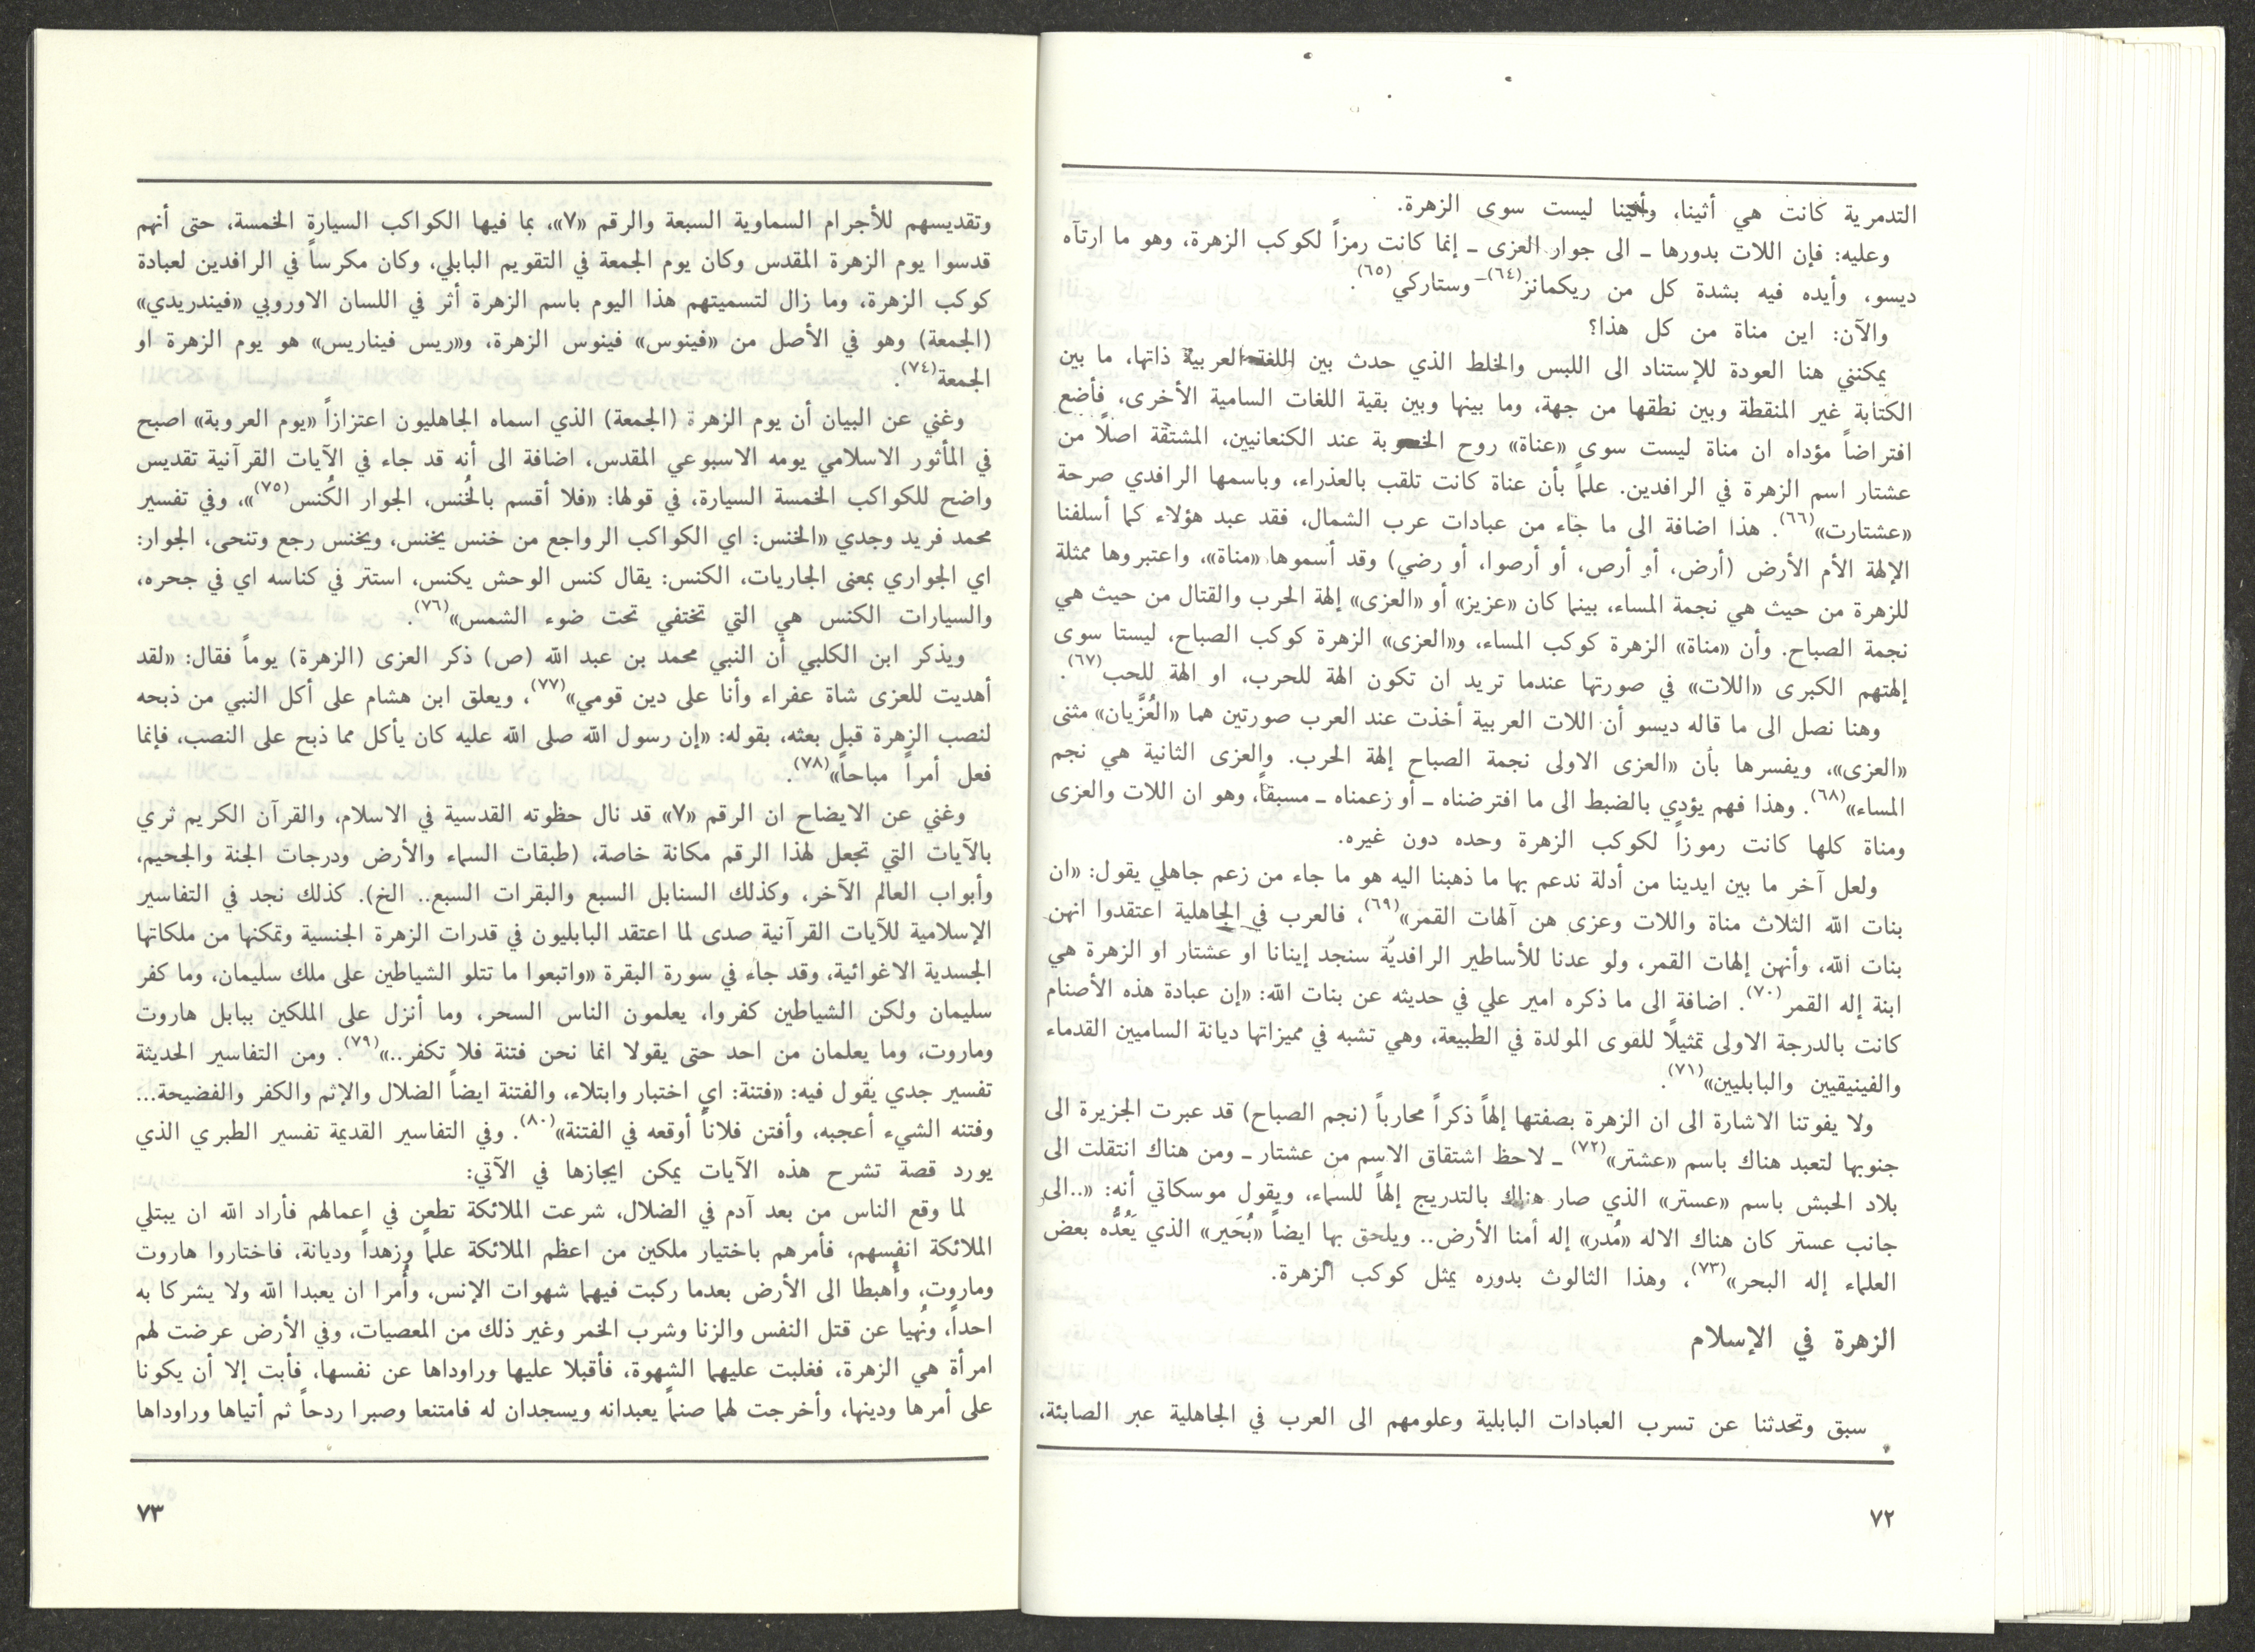 التدمرية كانت هي أثينا، وأثينا ليست سوى الزهرة.
وعليه: فإن اللات بدورها ـ الى جوار العزى ـ إنما كانت رمزاً لكوكب الزهرة، وهو ما ارتآه
ديسو، وأيده فيه بشدة كل من ريكمانز(٦٤)ـ وستاركي(٦٥).
والآن: اين مناة من كل هذا؟
يمكنني هنا العودة للإستناد الى اللبس والخلط الذي حدث بين اللغة العربية ذاتها، ما بين
الكتابة غير المنقطة وبين نطقها من جهة، وما بينها وبين بقية اللغات السامية الأخرى، فأضع
افتراضاً مؤداه ان مناة ليست سوى «عناة» روح الخصوبة عند الكنعانيين، المشتقة اصلاً من
عشتار اسم الزهرة في الرافدين. علماً بأن عناة كانت تلقب بالعذراء، وباسمها الرافدي صرحة
«عشتارت»(٦٦). هذا اضافة الى ما جاء من عبادات عرب الشمال، فقد عبد هؤلاء كما أسلفنا
الإلهة الأم الأرض (أرض، أو أرص، أو أرصوا، أو رضي) وقد أسموها «مناة»، واعتبروها ممثلة
للزهرة من حيث هي نجمة المساء، بينما كان «عزيز» أو «العزى» إلهة الحرب والقتال من حيث هي
نجمة الصباح. وأن «مناة» الزهرة كوكب المساء، و«العزى» الزهرة كوكب الصباح، ليستا سوى
إلهتهم الكبرى «اللات» في صورتها عندما تريد ان تكون الهة للحرب، او الهة للحب(٦٧).
وهنا نصل الى ما قاله ديسو أن اللات العربية أخذت عند العرب صورتين هما «العُزَّيان» مثنى
«العزى»، ويفسرها بأن «العزى الاولى نجمة الصباح إلهة الحرب. والعزى الثانية هي نجم
المساء»(٦٨). وهذا فهم يؤدي بالضبط الى ما افترضناه ـ أو زعمناه ـ مسبقاً، وهو ان اللات والعزى
ومناة كلها كانت رموزاً لكوكب الزهرة وحده دون غيره.
ولعل آخر ما بين ايدينا من أدلة ندعم بها ما ذهبنا اليه هو ما جاء من زعم جاهلي يقول: «ان
بنات الله الثلاث مناة واللات وعزى هن آلهات القمر»(٦٩)، فالعرب في الجاهلية اعتقدوا انهن
بنات الله، وأنهن إلهات القمر، ولو عدنا للأساطير الرافديّة سنجد إينانا او عشتار او الزهرة هي
ابنة إله القمر(٧٠). اضافة الى ما ذكره امير علي في حديثه عن بنات الله: «إن عبادة هذه الأصنام
كانت بالدرجة الاولى تمثيلاً للقوى المولدة في الطبيعة، وهي تشبه في مميزاتها ديانة الساميين القدماء
والفينيقيين والبابليين»(٧١).
ولا يفوتنا الاشارة الى ان الزهرة بصفتها إلهاً ذكراً محارباً (نجم الصباح) قد عبرت الجزيرة الى
جنوبها لتعبد هناك باسم «عشتر»(٧٢) ـ لاحظ اشتقاق الاسم من عشتار ـ ومن هناك انتقلت الى
بلاد الحبش باسم «عستر» الذي صار هناك بالتدريج إلهاً للسماء، ويقول موسكاتي أنه: «..الى
جانب عستر كان هناك الاله «مُدر» إله أمنا الأرض.. ويلحق بها ايضاً «بُحَير» الذي يَعُدُّه بعض
العلماء إله البحر»(٧٣)، وهذا الثالوث بدوره يمثل كوكب الزهرة.
الزهرة في الإسلام
سبق وتحدثنا عن تسرب العبادات البابلية وعلومهم الى العرب في الجاهلية عبر الصابئة،
٧٢
وتقديسهم للأجرام السماوية السبعة والرقم «٧»، بما فيها الكواكب السيارة الخمسة، حتى أنهم
قدسوا يوم الزهرة المقدس وكان يوم الجمعة في التقويم البابلي، وكان مكرساً في الرافدين لعبادة
كوكب الزهرة، وما زال لتسميتهم هذا اليوم باسم الزهرة أثر في اللسان الاوروبي «فيندريدي»
(الجمعة) وهو في الأصل من «فينوس» فينوس الزهرة، و«ريس فيناريس» هو يوم الزهرة او
الجمعة(٧٤).
وغني عن البيان أن يوم الزهرة (الجمعة) الذي اسماه الجاهليون اعتزازاً «يوم العروبة» اصبح
في المأثور الاسلامي يومه الاسبوعي المقدس، اضافة الى أنه قد جاء في الآيات القرآنية تقديس
واضح للكواكب الخمسة السيارة، في قولها: «فلا أقسم بالخُنس، الجوار الكُنس(٧٥)»، وفي تفسير
محمد فريد وجدي «الخنس: اي الكواكب الرواجع من خنس يخنس، ويخنس رجع وتنحى، الجوار:
اي الجواري بمعنى الجاريات، الكنس: يقال كنس الوحش يكنس، استتر في كناسه اي في جحره،
والسيارات الكنس هي التي تختفي تحت ضوء الشمس»(٧٦).
ويذكر ابن الكلبي أن النبي محمد بن عبد الله (ص) ذكر العزى (الزهرة) يوماً فقال: «لقد
أهديت للعزى شاة عفراء وأنا على دين قومي»(٧٧)، ويعلق ابن هشام على أكل النبي من ذبحه
لنصب الزهرة قبل بعثه، بقوله: «إن رسول الله صلى الله عليه كان يأكل مما ذبح على النصب، فإنما
فعل أمراً مباحاً»(٧٨).
وغني عن الايضاح ان الرقم «٧» قد نال حظوته القدسية في الاسلام، والقرآن الكريم ثري
بالآيات التي تجعل لهذا الرقم مكانة خاصة، (طبقات السماء والأرض ودرجات الجنة والجحيم،
وأبواب العالم الآخر، وكذلك السنابل السبع والبقرات السبع.. الخ). كذلك نجد في التفاسير
الإسلامية للآيات القرآنية صدى لما اعتقد البابليون في قدرات الزهرة الجنسية وتمكنها من ملكاتها
الجسدية الاغوائية، وقد جاء في سورة البقرة «واتبعوا ما تتلو الشياطين على ملك سليمان، وما كفر
سليمان ولكن الشياطين كفروا، يعلمون الناس السحر، وما أنزل على الملكين ببابل هاروت
وماروت، وما يعلمان من احد حتى يقولا انما نحن فتنة فلا تكفر..»(٧٩). ومن التفاسير الحديثة
تفسير جدي يقول فيه: «فتنة: اي اختبار وابتلاء، والفتنة ايضاً الضلال والإثم والكفر والفضيحة...
وفتنه الشيء أعجبه، وأفتن فلاناً أوقعه في الفتنة»(٨٠). وفي التفاسير القديمة تفسير الطبري الذي
يورد قصة تشرح هذه الآيات يمكن ايجازها في الآتي:
لما وقع الناس من بعد آدم في الضلال، شرعت الملائكة تطعن في اعمالهم فأراد الله ان يبتلي
الملائكة انفسهم، فأمرهم باختيار ملكين من اعظم الملائكة علماً وزهداً وديانة، فاختاروا هاروت
وماروت، وأُهبطا الى الأرض بعدما ركبت فيهما شهوات الإنس، وأُمرا ان يعبدا الله ولا يشركا به
احداً، ونُهيا عن قتل النفس والزنا وشرب الخمر وغير ذلك من المعصيات، وفي الأرض عرضت لهم
امرأة هي الزهرة، فغلبت عليهما الشهوة، فأقبلا عليها وراوداها عن نفسها، فأبت إلا أن يكونا
على أمرها ودينها، وأخرجت لهما صنماً يعبدانه ويسجدان له فامتنعا وصبرا ردحاً ثم أتياها وراوداها
٧٣